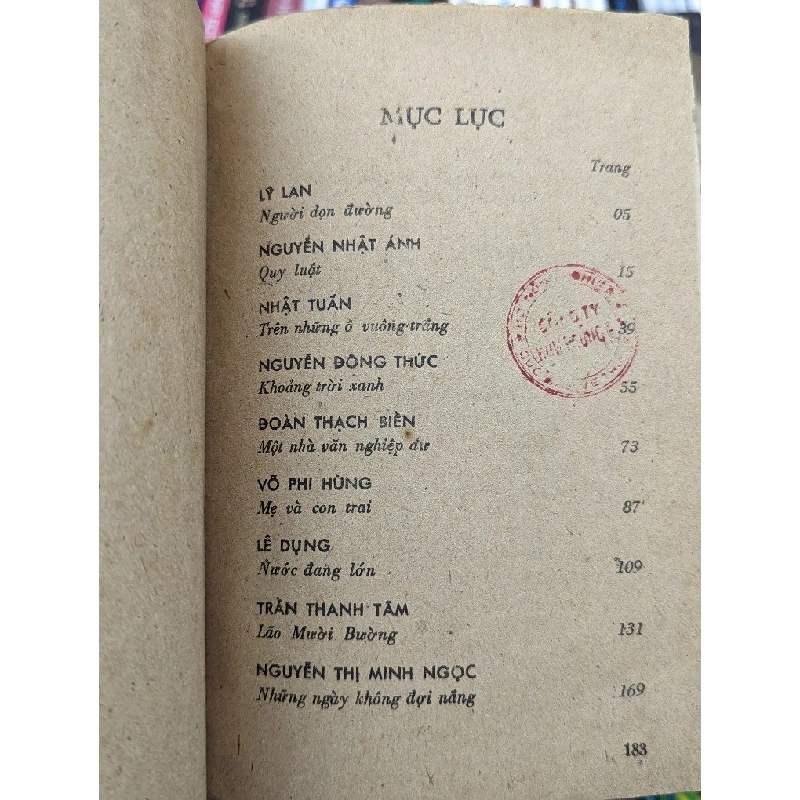 MỤC LỤC
Trang
LÝ LAN
Người dọn đường 05
NGUYỄN NHẬT ÁNH
Quy luật 15
NHẬT TUẤN
Trên những ô vuông trắng 39
NGUYỄN ĐÔNG THỨC
Khoảng trời xanh 55
ĐOÀN THẠCH BIỀN
Một nhà văn nghiệp dư 73
VÕ PHI HÙNG
Mẹ và con trai 87
LÊ DỤNG
Nước đang lớn 109
TRẦN THANH TÂM
Lão Mười Bường 131
NGUYỄN THỊ MINH NGỌC
Những ngày không đợi nắng 169
183